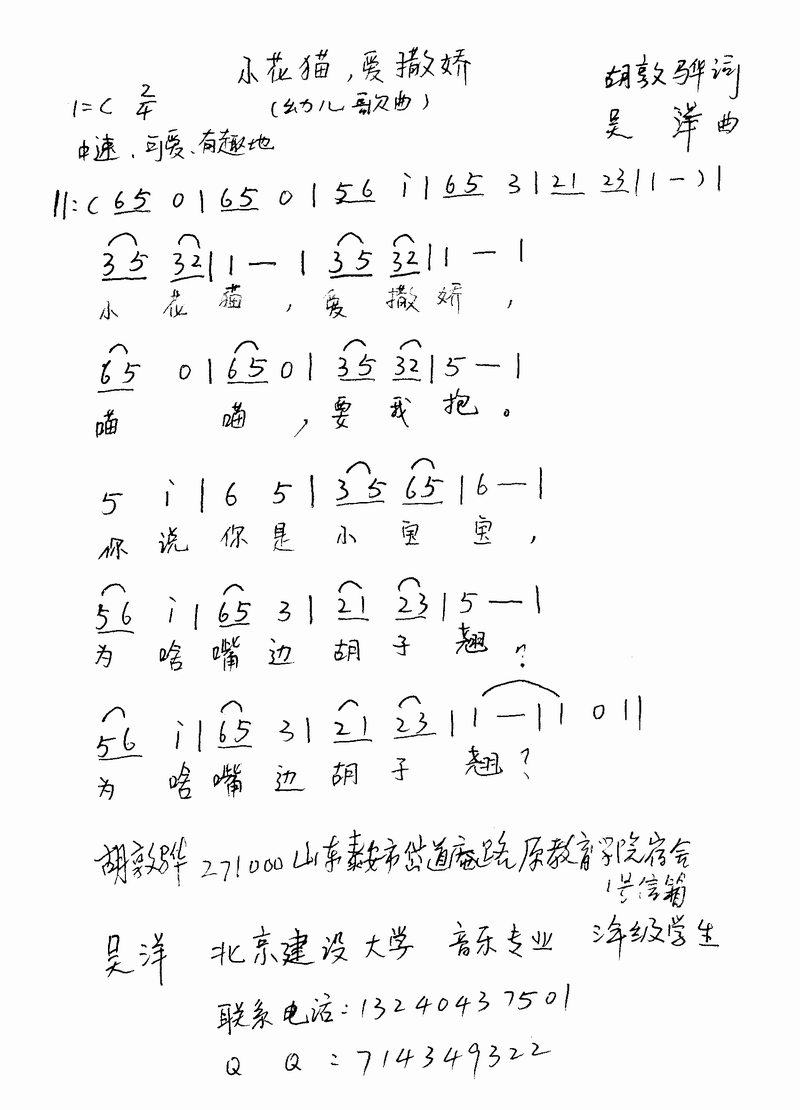 小花猫,爱撒娇
1=C 2/4 (幼儿歌曲) 胡敦骅词
中速、可爱、有趣地 吴 洋 曲
||:( 65 0 | 65 0 | 56 i | 65 3 | 21 23 | 1 - ) |
35 32 | 1 — | 35 32 | 1 — |
小 花 猫 , 爱 撒 娇 ,
65 0 | 65 0 | 35 32 | 5 — |
喵 喵 , 要 我 抱 。
5 i | 6 5 | 35 65 | 6 — |
你 说 你 是 小 宝 宝 ,
56 i | 65 3 | 21 23 | 5 — |
为 啥 嘴 边 胡 子 翘 ?
56 i | 65 3 | 21 23 | 1 — | 1 0 ||
为 啥 嘴 边 胡 子 翘 ?
胡敦骅 271000 山东泰安市岱道庵路原教育学院宿舍
1号信箱
吴洋 北京建设大学 音乐专业 三年级学生
联系电话:13240437501
Q Q :714349322